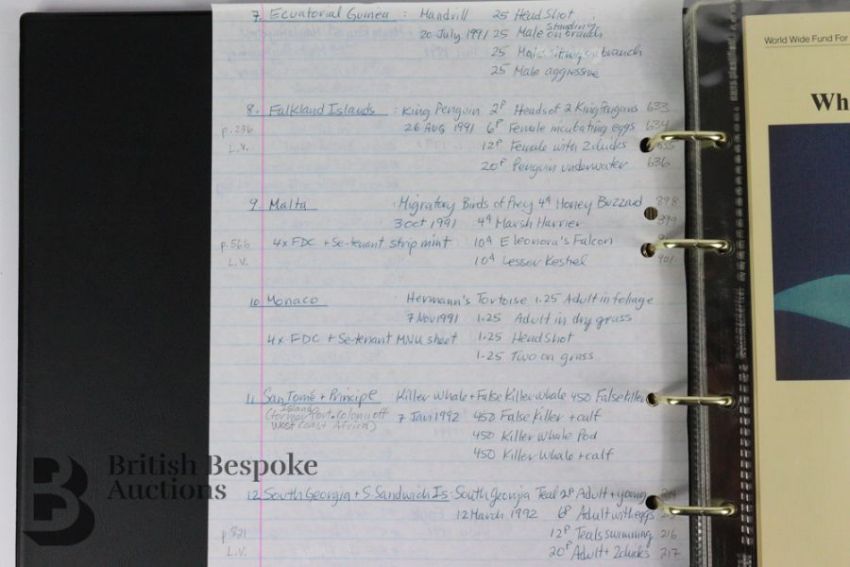 7 Ecuatorial Guinea : Mandrill 25 Head Shot
20 July 1991 25 Male Standing on branch
25 Male sitting on branch
25 Male aggressive
8. Falkland Islands : King Penguin 2P Heads of 2 King Penguins 633
p.236 26 AUG 1991 6P Female incubating eggs 634
L.V. 12P Female with 2 chicks 635
20P Penguin underwater 636
9 Malta : Migratory Birds of Prey 4d Honey Buzzard 898
3 Oct 1991 4d Marsh Harrier 899
p.566 4x FDC + Se-tenant strip mint 10d Eleonora's Falcon
L.V. 10d Lesser Kestrel 901
10 Monaco : Hermann's Tortoise 1.25 Adult in foliage
7 Nov 1991 1.25 Adult in dry grass
4x FDC + Se-tenant MNU sheet 1.25 Head Shot
1.25 Two on grass
11 San Tomé + Principe Killer Whale + False Killer Whale 450 False Killer
Islands (former Port. Colony off 7 Jan 1992 450 False Killer + calf
West Coast Africa) 450 Killer Whale Pod
450 Killer Whale + calf
12 South Georgia + S. Sandwich Is: South Georgia Teal 2P Adult + young
12 March 1992 6P Adult with eggs
p.821 12P Teal swimming 216
L.V. 20P Adult + 2 chicks 217
World Wide Fund For
Wh
B
British Bespoke
Auctions